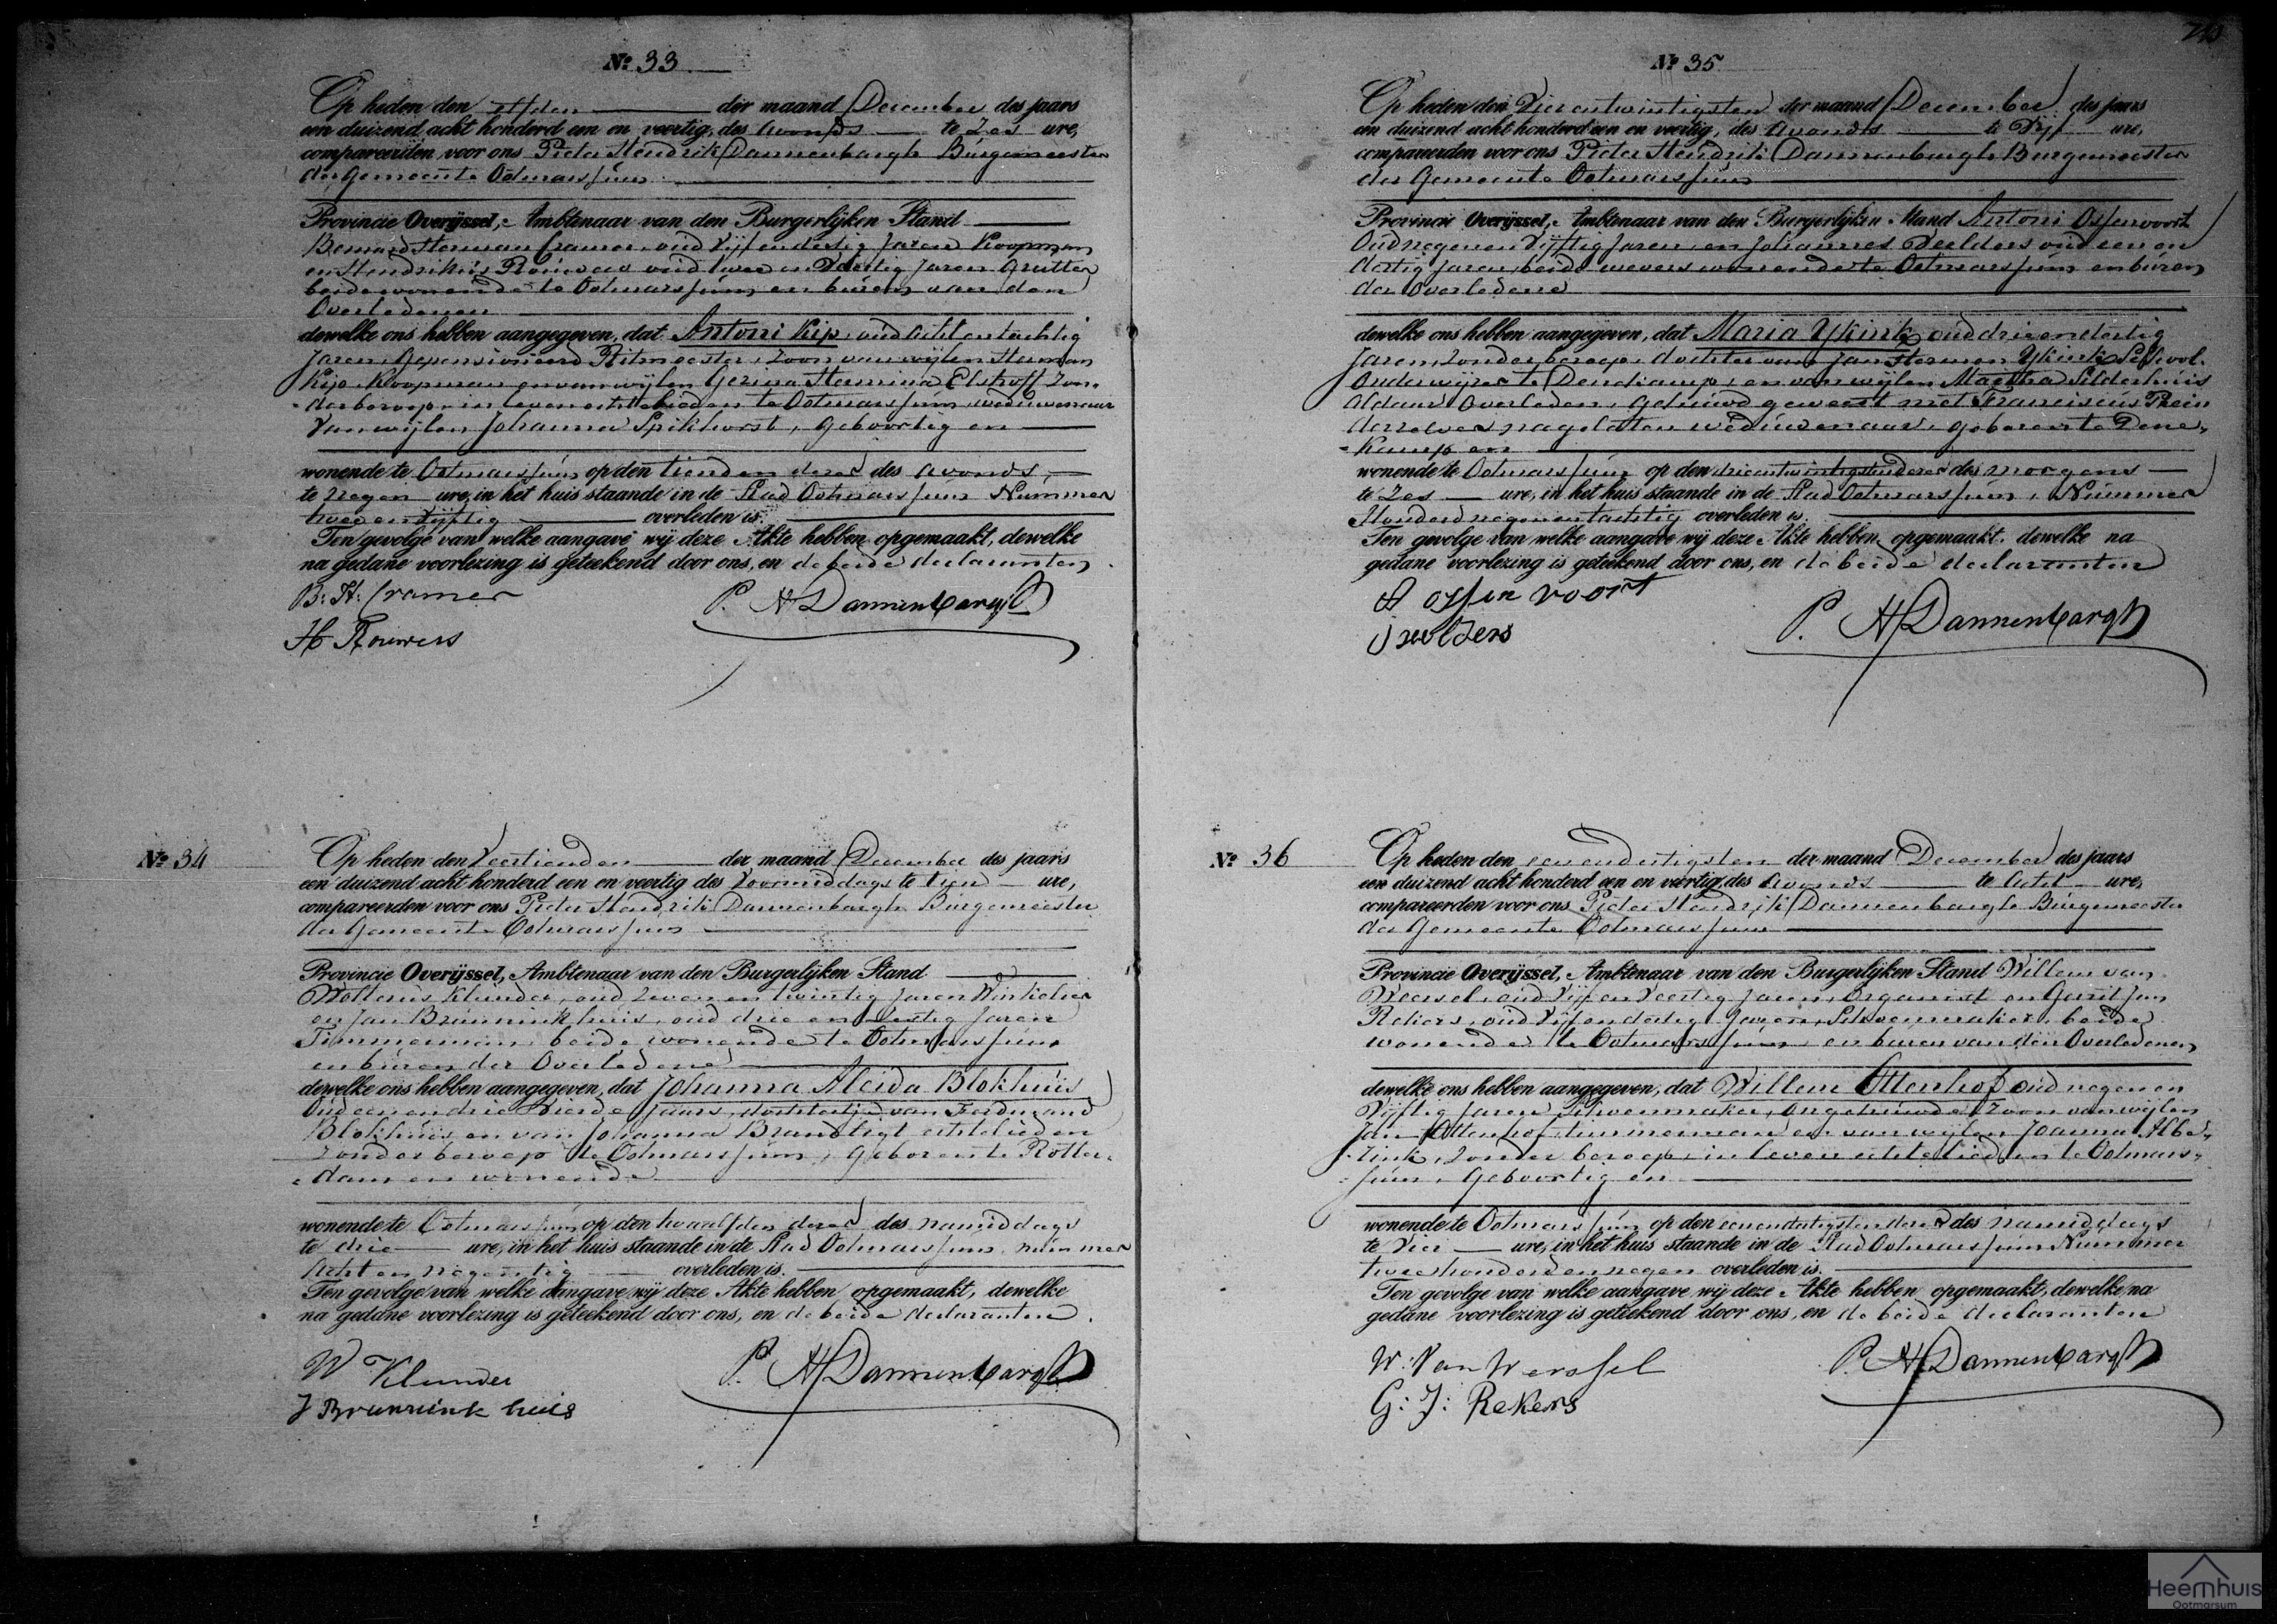 Nº 33
Op heden den elfden der maand December des jaars
een duizend acht honderd een en veertig, des avonds te Zes ure,
compareerden voor ons Pieter Hendrik Dannenbargh Burgemeester
der Gemeente Ootmarssum
Provincie Overijssel, Ambtenaar van den Burgerlijken Stand
Bernard Herman Cramer, oud Vijf en dertig Jaren Koopman
en Hendrikus Rouwers oud twee en Jaren Grutter
beide wonende te Ootmarssum en buren van den
Overledenen
dewelke ons hebben aangegeven, dat Antoni Kip oud acht en tachtig
Jaren, Gepensioneerd Ritmeester, Zoon van wijlen Herman
Kip Koopman en van wijlen Gezina Hermina Elstroff Zon-
der beroep in leven echtelieden te Ootmarssum weduwenaar
Van wijlen Johanna Spikhorst, Geboortig en
wonende te Ootmarssum op den tienden dezer des avonds
te negen ure, in het huis staande in de Stad Ootmarssum Nummer
twee en Vijftig overleden is.
Ten gevolge van welke aangave wij deze Akte hebben opgemaakt, dewelke
na gedane voorlezing is geteekend door ons, en de beide declaranten
B: H: Cramer
P. H Dannenbargh
H Rouwers
Nº 34
Op heden den Veertienden der maand December des jaars
een duizend acht honderd een en veertig des Voormiddags te tien ure,
compareerden voor ons Pieter Hendrik Dannenbargh Burgemeester
der Gemeente Ootmarssum
Provincie Overijssel, Ambtenaar van den Burgerlijken Stand
Wolterus Klunder, oud Zeven en twintig Jaren Winkelier
en Jan Bruininkhuis, oud drie en Jaren
Timmerman, beide wonende te Ootmarssum
en buren der Overledene
dewelke ons hebben aangegeven, dat Johanna Aleida Blokhuis
Oud een en drie Vierde Jaars, dochtertje van Ferdinand
Blokhuis en van Johanna Brandligt echtelieden
Zonder beroep te Ootmarssum, Geboren te Rotter-
dam en wonende
wonende te Ootmarssum op den twaalfden dezer des namiddags
te drie ure, in het huis staande in de Stad Ootmarssum nummer
Acht en negentig overleden is.
Ten gevolge van welke aangave wij deze Akte hebben opgemaakt, dewelke
na gedane voorlezing is geteekend door ons, en de beide declaranten.
W Klunder
P. H Dannenbargh
J Bruninkhuis
Nº 35
Op heden den Vierentwintigsten der maand December des jaars
een duizend acht honderd een en veertig, des avonds te Vijf ure,
compareerden voor ons Pieter Hendrik Dannenbargh Burgemeester
der Gemeente Ootmarssum
Provincie Overijssel, Ambtenaar van den Burgerlijken Stand Antoni Ossenvoort
Oud negen en Vijftig Jaren, en Johannes Veelders oud een en
dertig Jaren, beide wevers wonende te Ootmarssum en buren
der Overledene
dewelke ons hebben aangegeven, dat Maria Ykink, oud drie en dertig
Jaren, Zonder beroep, dochter van Jan Herman Ykink School-
Onderwijzer te Denekamp, en van wijlen Martha Silderhuis
Aldaar Overleden, Gehuwd geweest met Franciscus
derzelver nagelaten weduwenaar, geboren te Dene-
kamp en
wonende te Ootmarssum op den drieentwintigsten dezer des morgens
te Zes ure, in het huis staande in de Stad Ootmarssum, Nummer
Honderd negen en tachtig overleden is.
Ten gevolge van welke aangave wij deze Akte hebben opgemaakt, dewelke na
gedane voorlezing is geteekend door ons, en de beide declaranten
A ossen voort
P. H Dannenbargh
J veelders
Nº 36
Op heden den een en dertigsten der maand December des jaars
een duizend acht honderd een en veertig, des avonds te acht ure,
compareerden voor ons Pieter Hendrik Dannenbargh Burgemeester
der Gemeente Ootmarssum
Provincie Overijssel, Ambtenaar van den Burgerlijken Stand Willem van
Weersel, oud Vijf en Veertig Jaren, Organist en Gerrit Jan
Rekers, oud Vijf en dertig Jaren, Schoenmaker, beide
wonende te Ootmarssum en buren van den Overledenen
dewelke ons hebben aangegeven, dat Willem Ottenhof oud negen en
Vijftig Jaren Schoenmaker, Ongehuwd, Zoon van wijlen
Jan Ottenhof timmerman en van wijlen Joanna Albe-
rink, Zonder beroep in leven echtelieden te Ootmars-
sum, Geboortig en
wonende te Ootmarssum op den eenendertigsten dezer des namiddags
te Vier ure, in het huis staande in de Stad Ootmarssum Nummer
twee honderd en negen overleden is.
Ten gevolge van welke aangave wij deze Akte hebben opgemaakt, dewelke na
gedane voorlezing is geteekend door ons, en de beide declaranten
W: Van Werssel
P. H Dannenbargh
G: J: Rekers
Heemhuis
Ootmarsum